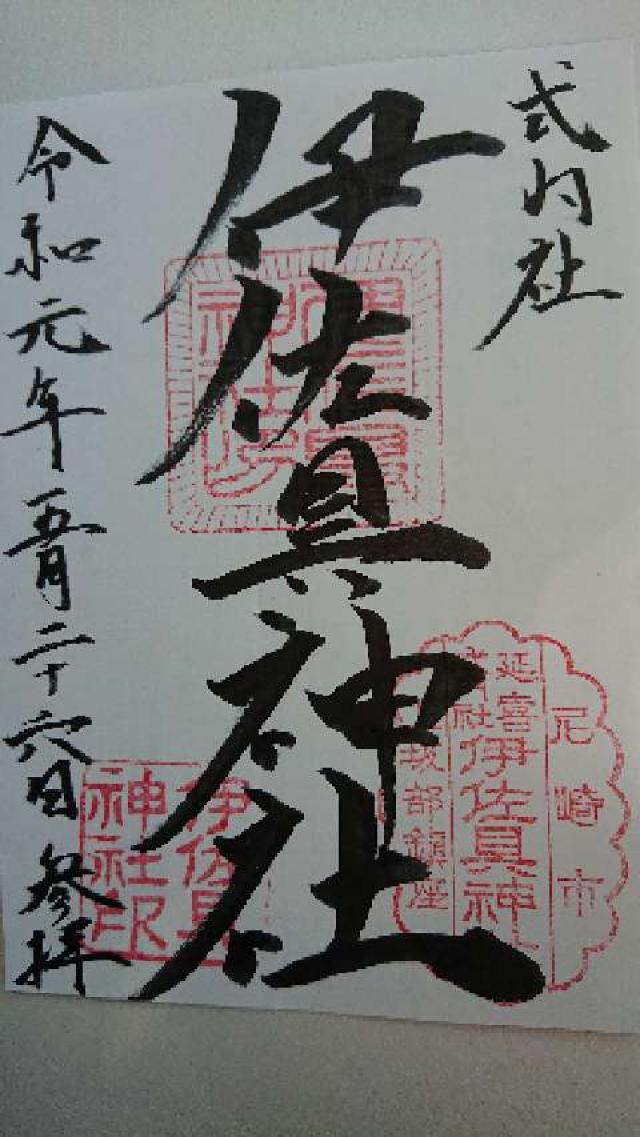 式内社
伊佐具神社
令和元年五月二十六日 参拝
尼崎市
延喜
式内社
伊佐具神社
坂部鎮座
伊佐具
神社印